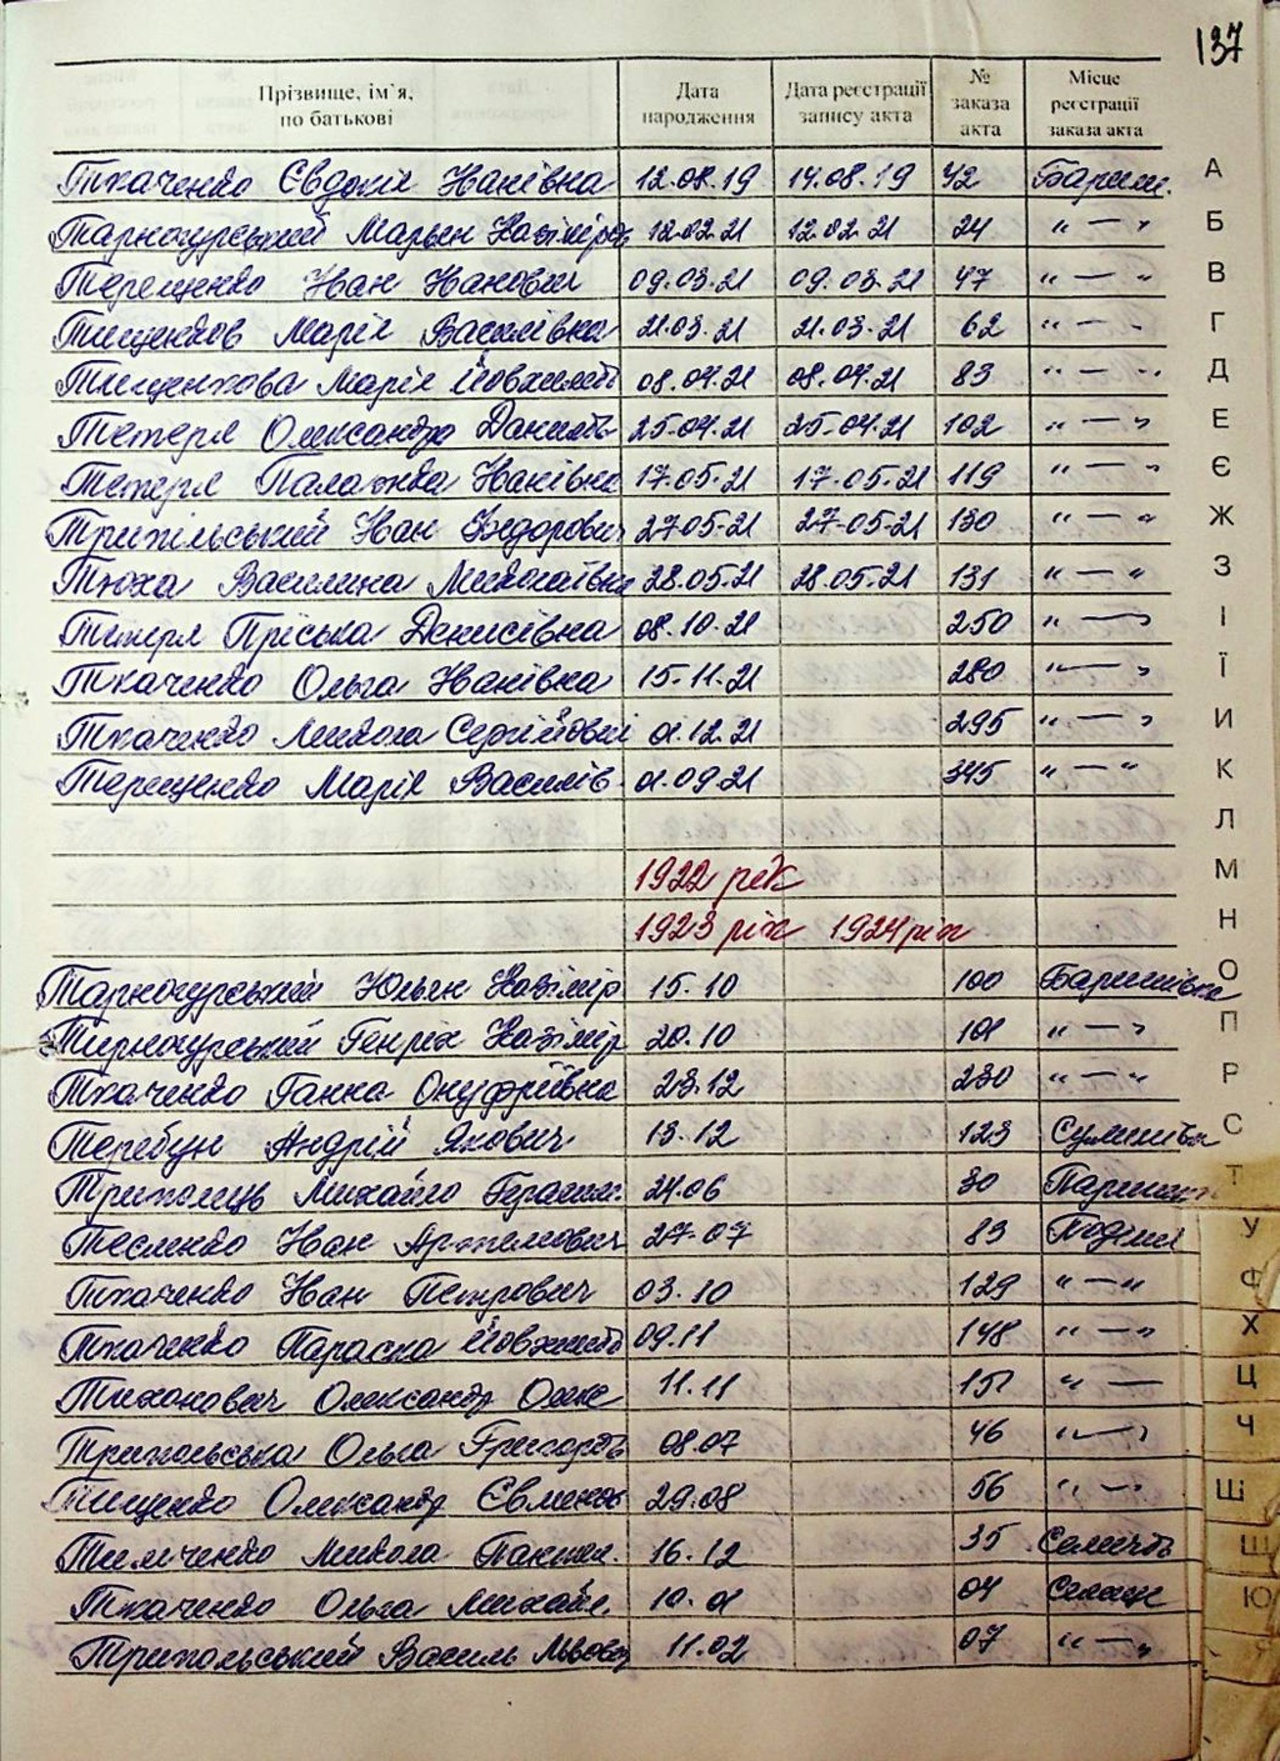 137
Прізвище, ім'я, по батькові Дата народження Дата реєстрації запису акта № заказа акта Місце реєстрації заказа акта
Ткаченко Євдокія Іванівна 12.08.19 14.08.19 42 Бариш.
Тарногурський Марьян Казіміров 12.02.21 12.02.21 24 " — "
Терещенко Іван Іванович 09.03.21 09.03.21 47 " — "
Тищенков Марія Василівна 21.03.21 21.03.21 62 " — "
Тищенкова Марія 08.04.21 08.04.21 83 " — "
Тетеря Олександра Данилів 25.04.21 25.04.21 102 " — "
Тетеря Палажка Іванівна 17.05.21 17.05.21 119 " — "
Трипільський Іван Федорович 27.05.21 27.05.21 130 " — "
Тюха Василина Миколаївна 28.05.21 28.05.21 131 " — "
Тетеря Пріська Денисівна 08.10.21 250 " — "
Ткаченко Ольга Іванівна 15.11.21 280 " — "
Ткаченко Микола Сергійович 01.12.21 295 " — "
Терещенко Марія Василів. 01.09.21 345 " — "
1922 рік
1923 рік 1924 рік
Тарногурський Юльян Казімір 15.10 100 Баришівка
Тарногурський Генріх Казімір 20.10 101 " — "
Ткаченко Ганна Онуфріївна 23.12 230 " — "
Теребун Андрій Якович 13.12 123
Триполець Михайло Герасим. 24.06 30
Тесленко Іван Артемович 27.07 83
Ткаченко Іван Петрович 03.10 129 " — "
Ткаченко Параска 09.11 148 " — "
Тихонович Олександр Олек 11.11 151 " —
Трипольська Ольга Григорів 08.07 46 " — "
Тищенко Олександр Євменов 29.08 56 " — "
Тимченко Микола 16.12 35
Ткаченко Ольга Михайл. 10.01 04
Трипольський Василь Львович 11.02 07 " — "
А
Б
В
Г
Д
Е
Є
Ж
З
І
Ї
И
К
Л
М
Н
О
П
Р
С
Т
У
Ф
Х
Ц
Ч
Ш
Щ
Ю
Я